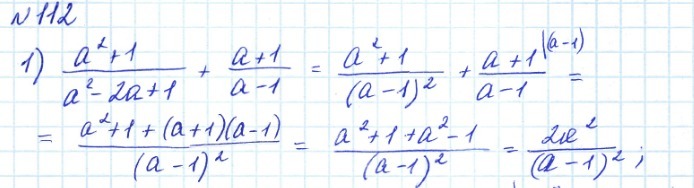 №112
1) \frac{a^2+1}{a^2-2a+1} + \frac{a+1}{a-1} = \frac{a^2+1}{(a-1)^2} + \frac{a+1}{a-1}^{|(a-1)} =
= \frac{a^2+1+(a+1)(a-1)}{(a-1)^2} = \frac{a^2+1+a^2-1}{(a-1)^2} = \frac{2a^2}{(a-1)^2};